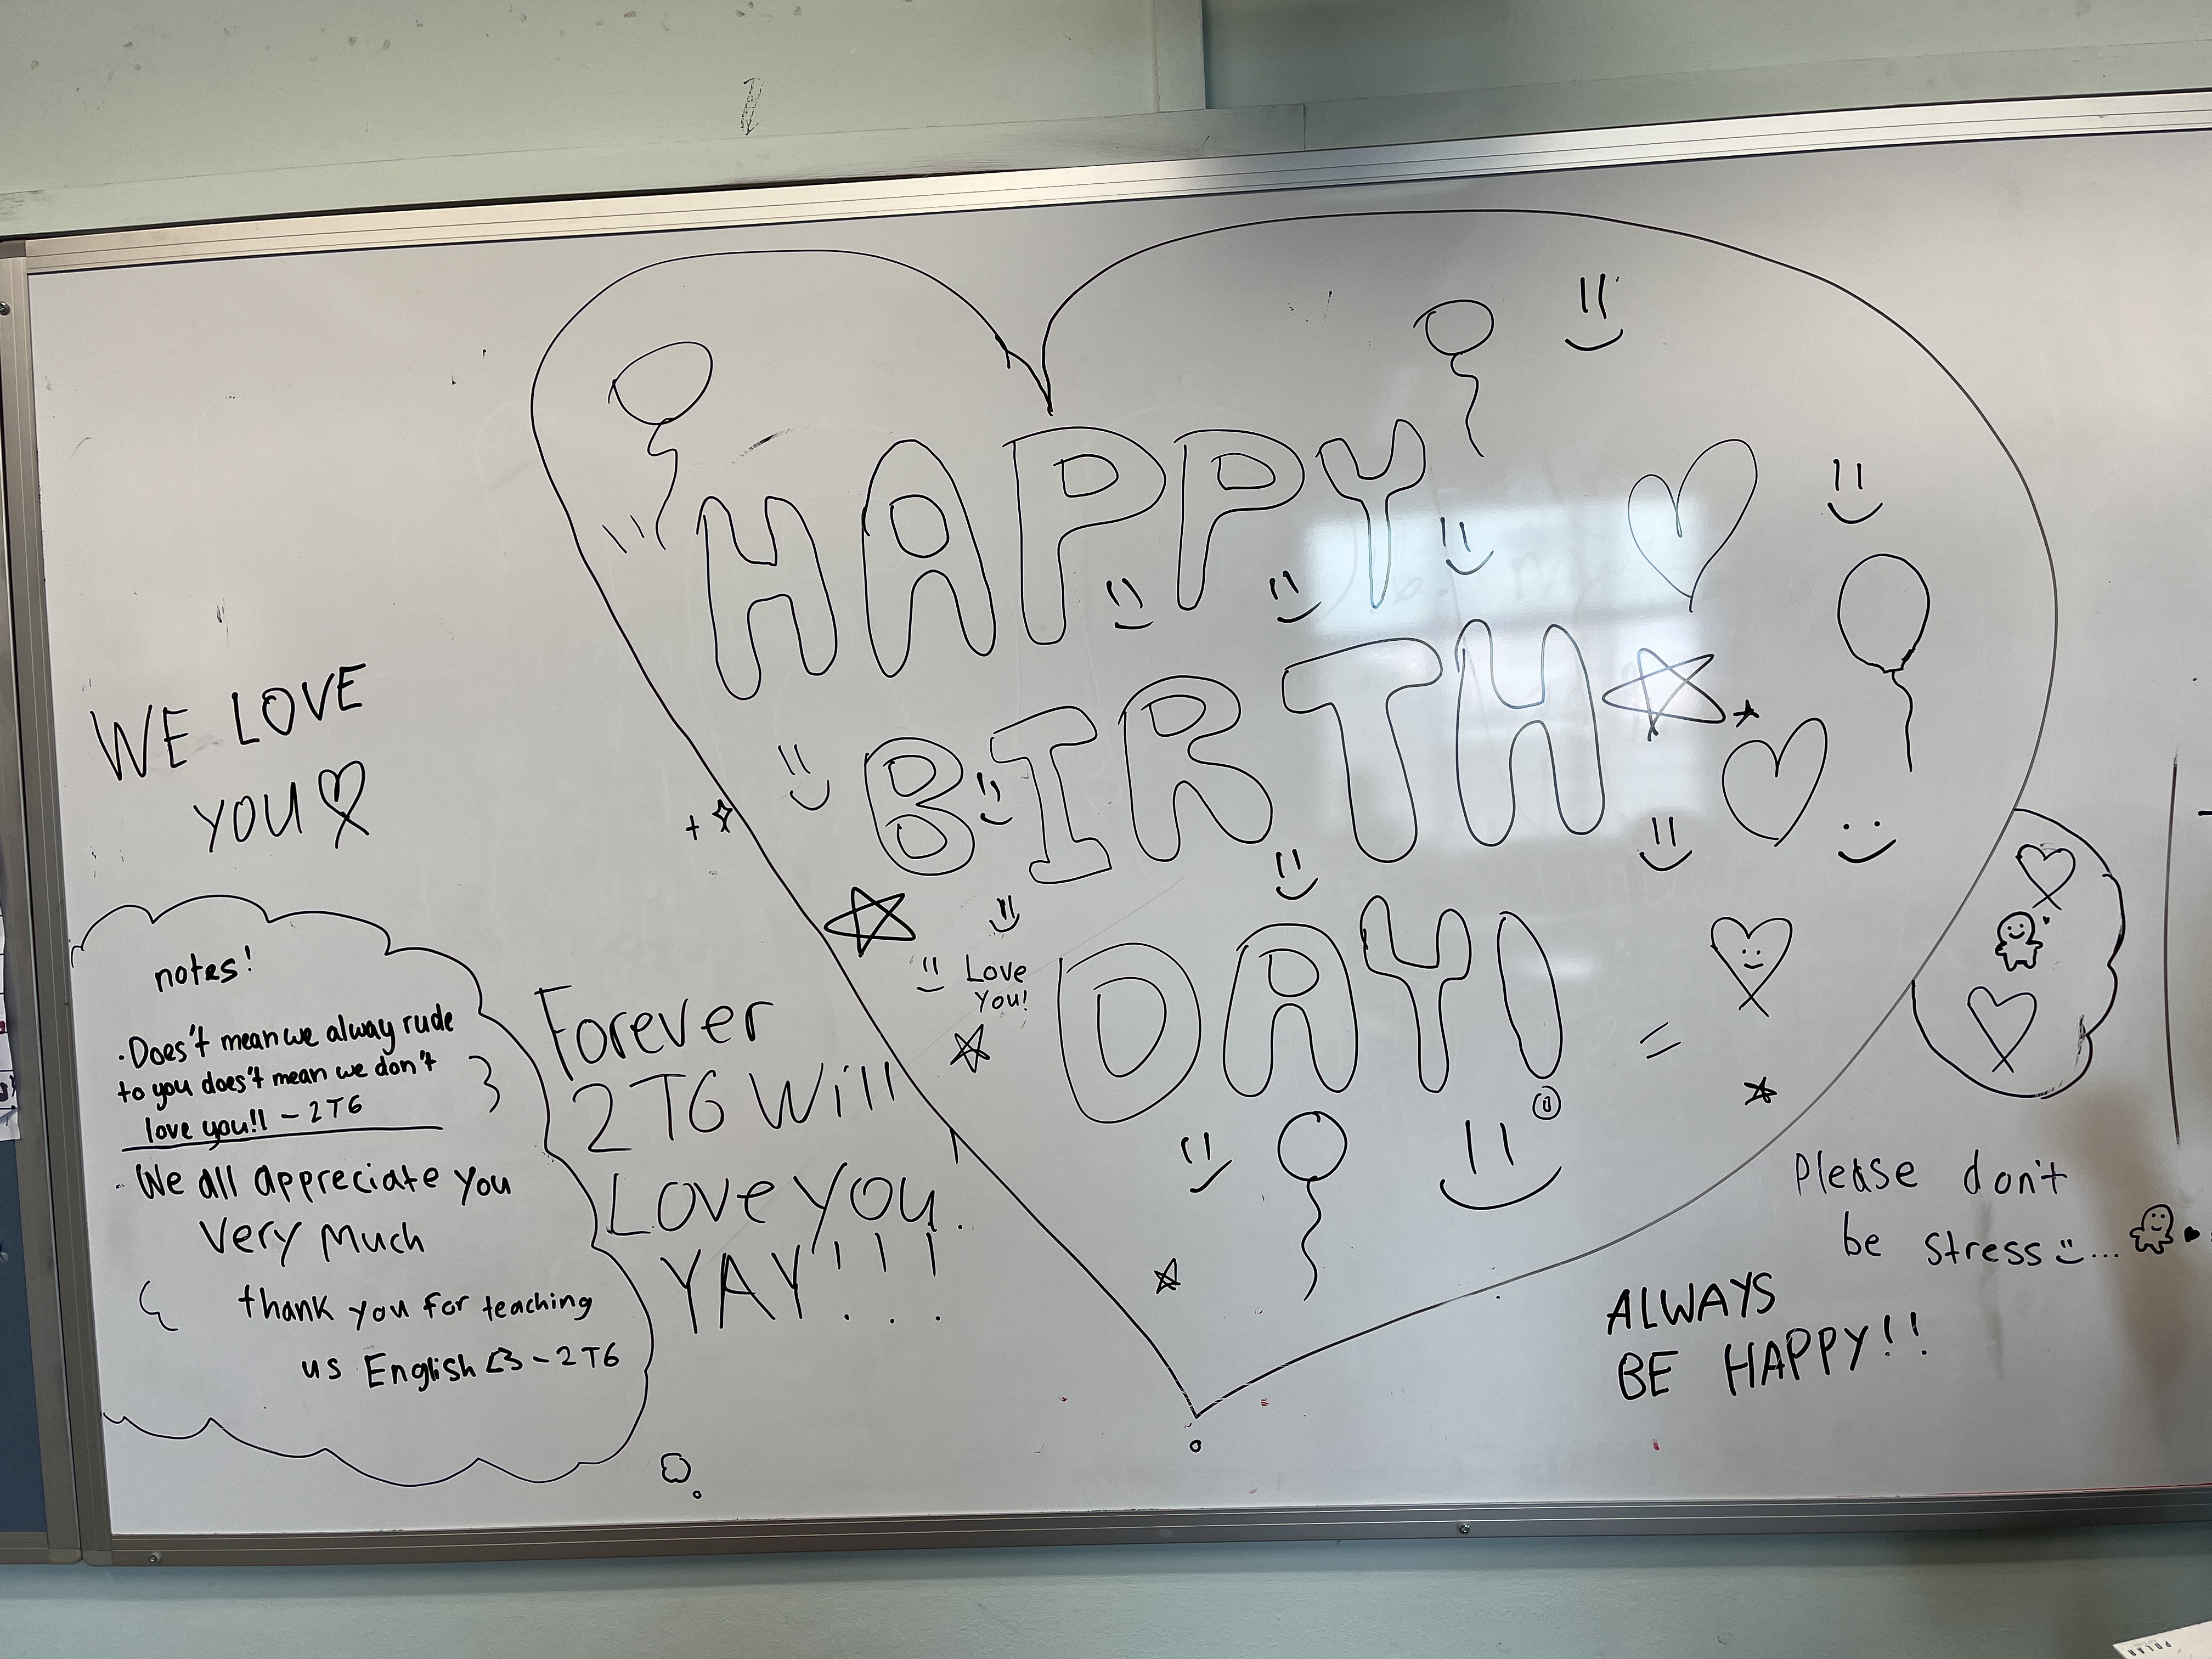 HAPPY
BIRTH
DAY!
Love
You!
WE LOVE
YOU
notes!
·Does't mean we alway rude
to you does't mean we don't
love you!! - 2T6
·We all appreciate you
Very Much
thank you for teaching
us English <3 - 2T6
Forever
2T6 Will
Love you.
YAY!!!
Please don't
be stress ...
ALWAYS
BE HAPPY!!
POLAR